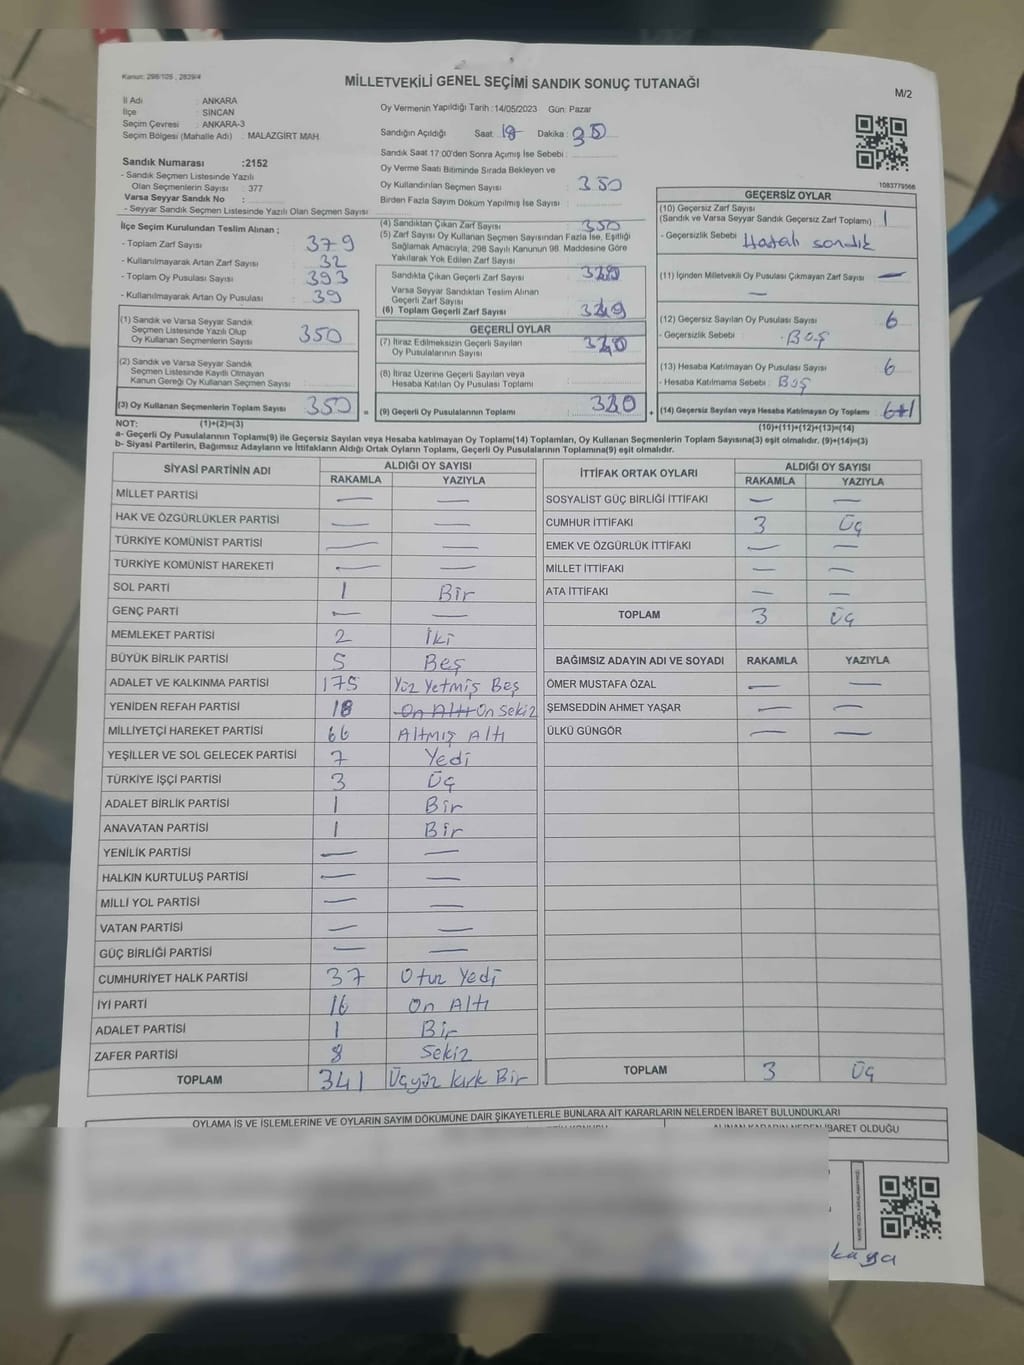 Kanun: 298/105 , 2839/4
MİLLETVEKİLİ GENEL SEÇİMİ SANDIK SONUÇ TUTANAĞI
M/2
İl Adı : ANKARA
İlçe : SİNCAN
Seçim Çevresi : ANKARA-3
Seçim Bölgesi (Mahalle Adı) : MALAZGİRT MAH.
Sandık Numarası :2152
- Sandık Seçmen Listesinde Yazılı
Olan Seçmenlerin Sayısı : 377
Varsa Seyyar Sandık No :
- Seyyar Sandık Seçmen Listesinde Yazılı Olan Seçmen Sayısı
Oy Vermenin Yapıldığı Tarih :14/05/2023 Gün: Pazar
Sandığın Açıldığı Saat: 18 Dakika : 30
Sandık Saat 17:00'den Sonra Açmış İse Sebebi :
Oy Verme Saati Bitiminde Sırada Bekleyen ve
Oy Kullandırılan Seçmen Sayısı : 350
Birden Fazla Sayım Döküm Yapılmış İse Sayısı :
1083779566
İlçe Seçim Kurulundan Teslim Alınan ;
- Toplam Zarf Sayısı : 379
- Kullanılmayarak Artan Zarf Sayısı : 32
- Toplam Oy Pusulası Sayısı : 393
- Kullanılmayarak Artan Oy Pusulası : 39
(1) Sandık ve Varsa Seyyar Sandık
Seçmen Listesinde Yazılı Olup
Oy Kullanan Seçmenlerin Sayısı : 350
(2) Sandık ve Varsa Seyyar Sandık
Seçmen Listesinde Kayıtlı Olmayan
Kanun Gereği Oy Kullanan Seçmen Sayısı :
(3) Oy Kullanan Seçmenlerin Toplam Sayısı : 350 =
(1)+(2)=(3)
(4) Sandıktan Çıkan Zarf Sayısı : 350
(5) Zarf Sayısı Oy Kullanan Seçmen Sayısından Fazla İse, Eşitliği
Sağlamak Amacıyla; 298 Sayılı Kanunun 98. Maddesine Göre
Yakılarak Yok Edilen Zarf Sayısı :
Sandıkta Çıkan Geçerli Zarf Sayısı :
Varsa Seyyar Sandıktan Teslim Alınan
Geçerli Zarf Sayısı :
(6) Toplam Geçerli Zarf Sayısı :
GEÇERLİ OYLAR
(7) İtiraz Edilmeksizin Geçerli Sayılan
Oy Pusulalarının Sayısı :
(8) İtiraz Üzerine Geçerli Sayılan veya
Hesaba Katılan Oy Pusulası Toplamı :
(9) Geçerli Oy Pusulalarının Toplamı : +
GEÇERSİZ OYLAR
(10) Geçersiz Zarf Sayısı
(Sandık ve Varsa Seyyar Sandık Geçersiz Zarf Toplamı) : 1
- Geçersizlik Sebebi : Hatalı sandık
(11) İçinden Milletvekili Oy Pusulası Çıkmayan Zarf Sayısı : —
—
(12) Geçersiz Sayılan Oy Pusulası Sayısı : 6
- Geçersizlik Sebebi : Boş
(13) Hesaba Katılmayan Oy Pusulası Sayısı : 6
- Hesaba Katılmama Sebebi : Boş
(14) Geçersiz Sayılan veya Hesaba Katılmayan Oy Toplamı : 6+1
(10)+(11)+(12)+(13)=(14)
NOT:
a- Geçerli Oy Pusulalarının Toplamı(9) ile Geçersiz Sayılan veya Hesaba katılmayan Oy Toplamı(14) Toplamları, Oy Kullanan Seçmenlerin Toplam Sayısına(3) eşit olmalıdır. (9)+(14)=(3)
b- Siyasi Partilerin, Bağımsız Adayların ve İttifakların Aldığı Ortak Oyların Toplamı, Geçerli Oy Pusulalarının Toplamına(9) eşit olmalıdır.
SİYASİ PARTİNİN ADI ALDIĞI OY SAYISI
RAKAMLA YAZIYLA
MİLLET PARTİSİ — —
HAK VE ÖZGÜRLÜKLER PARTİSİ — —
TÜRKİYE KOMÜNİST PARTİSİ — —
TÜRKİYE KOMÜNİST HAREKETİ — —
SOL PARTİ 1 Bir
GENÇ PARTİ — —
MEMLEKET PARTİSİ 2 İki
BÜYÜK BİRLİK PARTİSİ 5 Beş
ADALET VE KALKINMA PARTİSİ 175 Yüz Yetmiş Beş
YENİDEN REFAH PARTİSİ 18 On Altı On Sekiz
MİLLİYETÇİ HAREKET PARTİSİ 66 Altmış Altı
YEŞİLLER VE SOL GELECEK PARTİSİ 7 Yedi
TÜRKİYE İŞÇİ PARTİSİ 3 Üç
ADALET BİRLİK PARTİSİ 1 Bir
ANAVATAN PARTİSİ 1 Bir
YENİLİK PARTİSİ — —
HALKIN KURTULUŞ PARTİSİ — —
MİLLİ YOL PARTİSİ — —
VATAN PARTİSİ — —
GÜÇ BİRLİĞİ PARTİSİ — —
CUMHURİYET HALK PARTİSİ 37 Otuz Yedi
İYİ PARTİ 16 On Altı
ADALET PARTİSİ 1 Bir
ZAFER PARTİSİ 8 Sekiz
TOPLAM 341 Üçyüz Kırk Bir
İTTİFAK ORTAK OYLARI ALDIĞI OY SAYISI
RAKAMLA YAZIYLA
SOSYALİST GÜÇ BİRLİĞİ İTTİFAKI — —
CUMHUR İTTİFAKI 3 Üç
EMEK VE ÖZGÜRLÜK İTTİFAKI — —
MİLLET İTTİFAKI — —
ATA İTTİFAKI — —
TOPLAM 3 Üç
BAĞIMSIZ ADAYIN ADI VE SOYADI RAKAMLA YAZIYLA
ÖMER MUSTAFA ÖZAL — —
ŞEMSEDDİN AHMET YAŞAR — —
ÜLKÜ GÜNGÖR — —
TOPLAM 3 Üç
OYLAMA İŞ VE İŞLEMLERİNE VE OYLARIN SAYIM DÖKÜMÜNE DAİR ŞİKAYETLERLE BUNLARA AİT KARARLARIN NELERDEN İBARET BULUNDUKLARI
ALINAN KARARIN NEDEN İBARET OLDUĞU
kaya